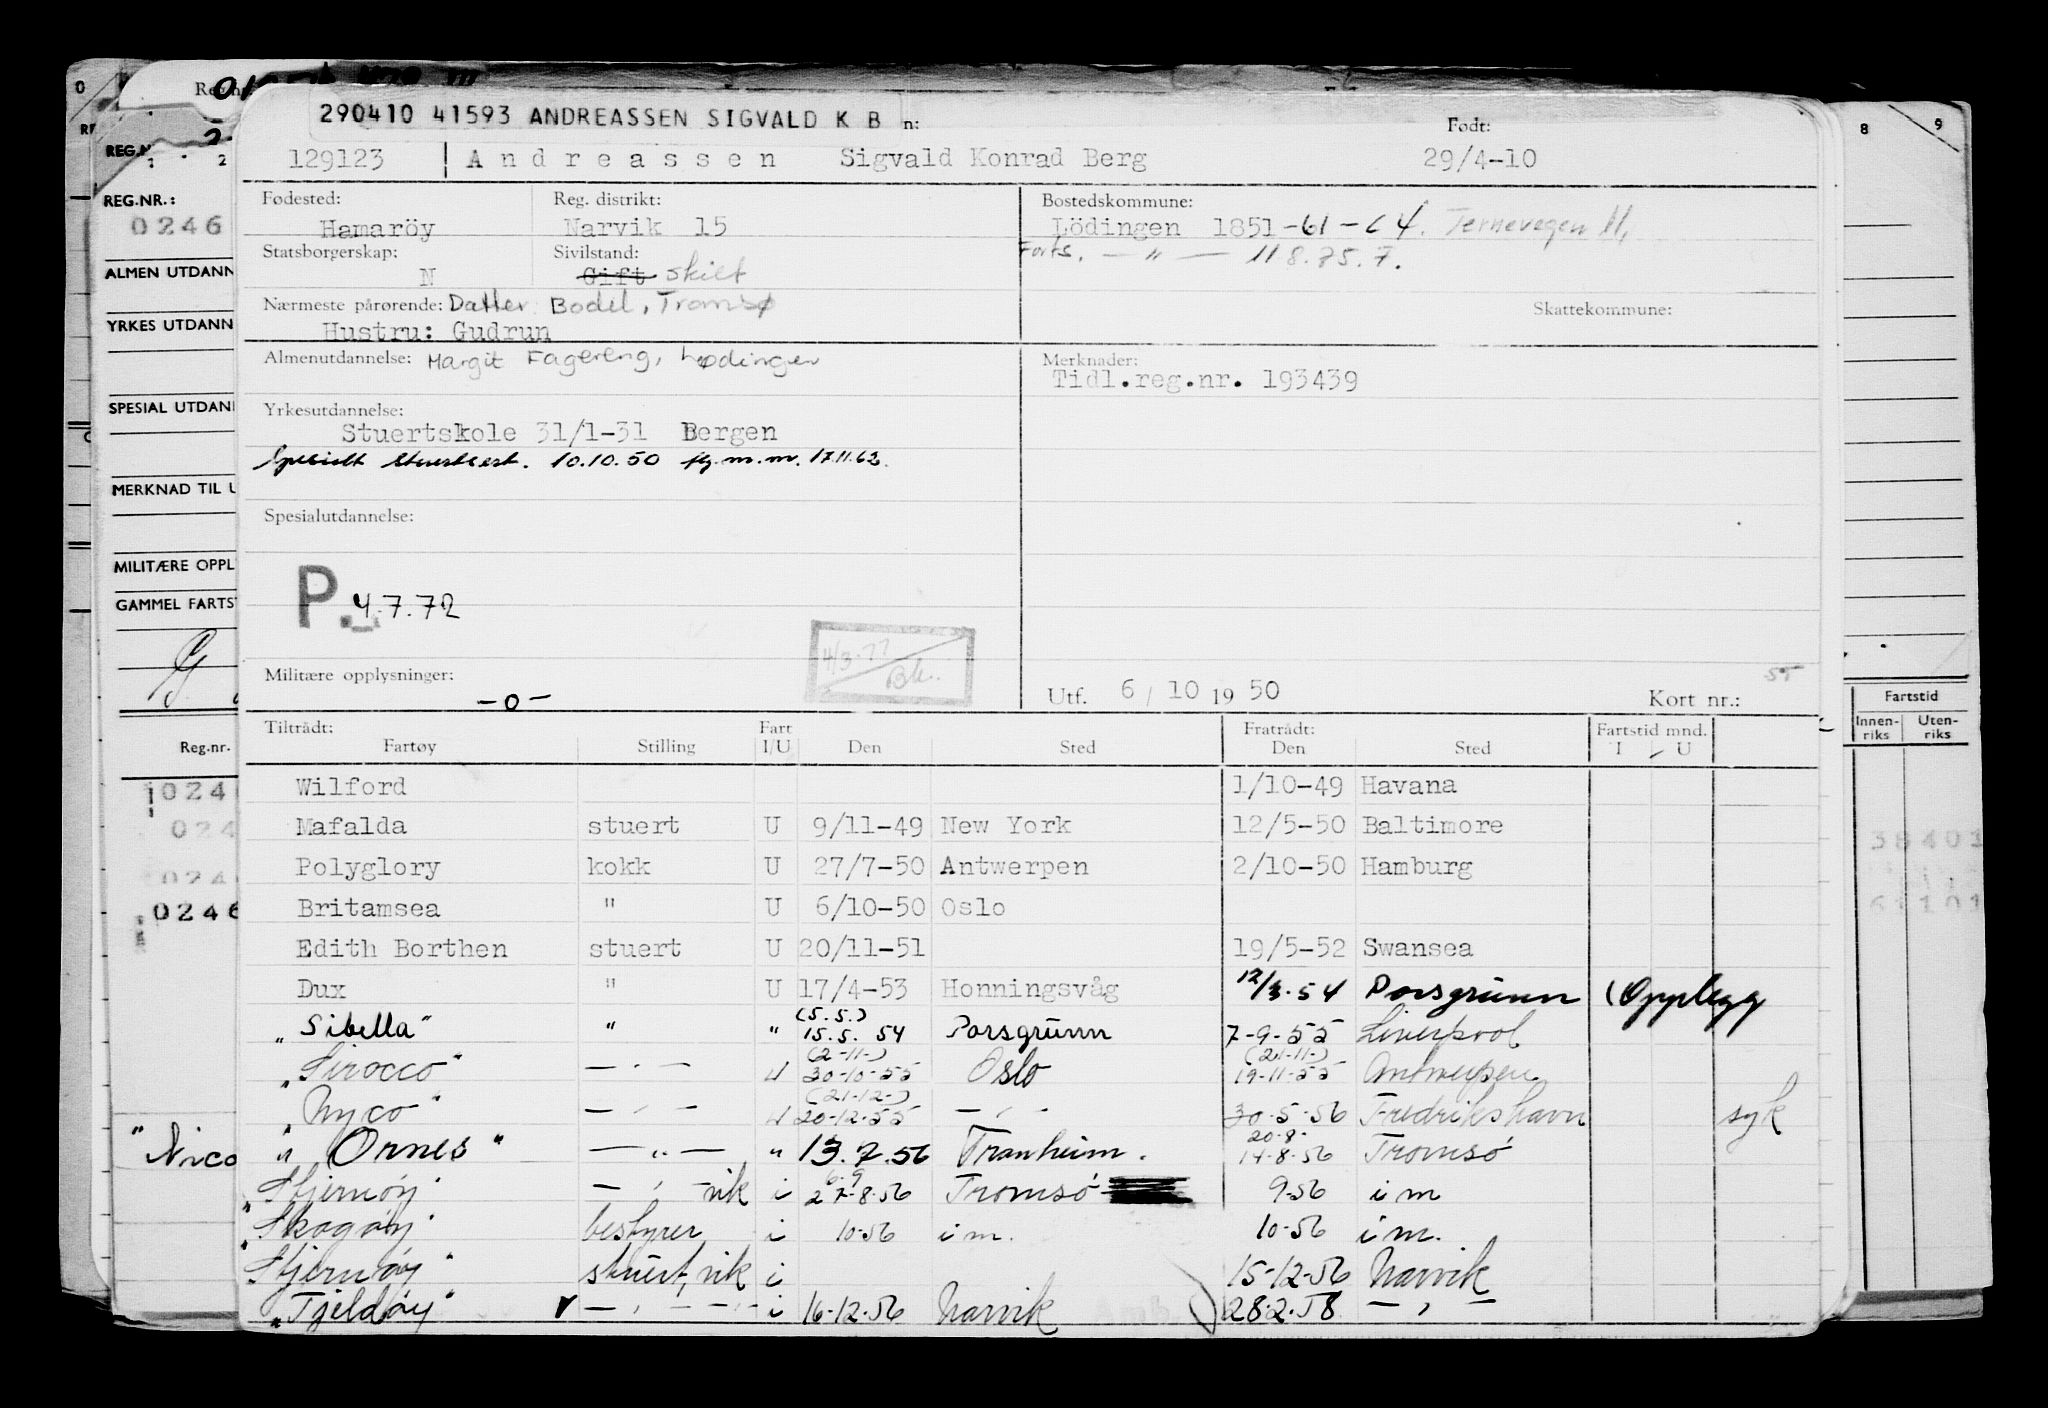 290410 41593 ANDREASSEN SIGVALD K B n:
Født:
129123 Andreassen Sigvald Konrad Berg 29/4-10
Fødested: Reg. distrikt: Bostedskommune:
Hamaröy Narvik 15 Lödingen 1851-61-64. Ternevegen 11,
Statsborgerskap: Sivilstand: Forts. — " — 118.75.7.
N Gift skilt
Nærmeste pårørende: Datter Bodel, Tromsø Skattekommune:
Hustru: Gudrun
Almenutdannelse: Margit Fagereng, Lødingen Merknader:
Tidl.reg.nr. 193439
Yrkesutdannelse:
Stuertskole 31/1-31 Bergen
Spesielt stuertsert. 10.10.50 flg. m.m. 17.11.62.
Spesialutdannelse:
P. 4.7.72
4/3-77
Bk.
Militære opplysninger: -0- Utf. 6/10 1950 Kort nr.:
55
Tiltrådt: Fart Fratrådt: Fartstid mnd.
Fartøy Stilling I/U Den Sted Den Sted I U
Wilford 1/10-49 Havana
Mafalda stuert U 9/11-49 New York 12/5-50 Baltimore
Polyglory kokk U 27/7-50 Antwerpen 2/10-50 Hamburg
Britamsea " U 6/10-50 Oslo
Edith Borthen stuert U 20/11-51 19/5-52 Swansea
Dux " U 17/4-53 Honningsvåg 12/3.54 Porsgrunn (Opplegg
(5.5.)
"Sibella" " " 15.5. 54 Porsgrunn 7-9-55 Liverpool
(2-11-) (21-11-)
"Sirocco" — " — U 30-10-55 Oslo 19-11-55 Antwerpen
(21-12-)
"Nyco" — " — U 20-12-55 — " — 30-5-56 Fredrikshavn syk
20-8-
"Nico " Ornes " — " — " 13.7.56 Tranheim. 14-8-56 Tromsö
6-9
"Stjernöy" — " — vik i 27-8-56 Tromsö 9-56 i m
"Skogöy" bestyrer i 10-56 i m. 10-56 i m.
Stjernöy" stuert, vik i 15-12-56 Narvik
"Tjeldöy" v — " — — " — i 16-12-56 Narvik 28.2.58 — " —
0
REG.NR.:
0246
ALMEN UTDANN
YRKES UTDANN
SPESIAL UTDAN
MERKNAD TIL U
MILITÆRE OPPL
GAMMEL FARTS
Reg.nr.
024
024
024
0246
8 9
Fartstid
Innen-riks Uten-riks
38401
61101